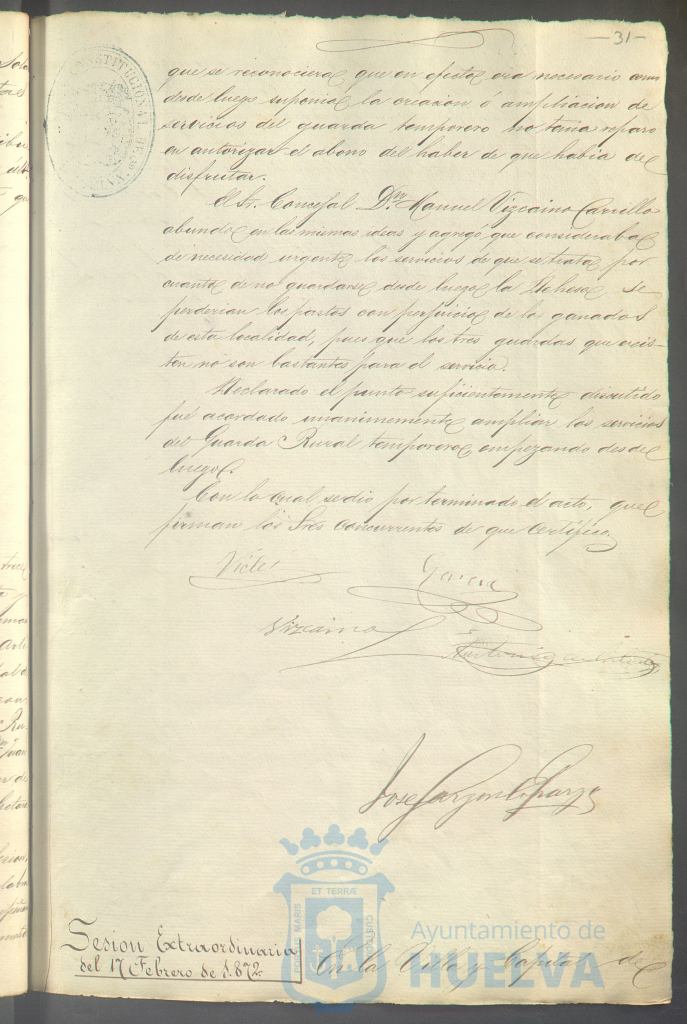 -31-
que se reconociera que en efecto era necesario como
desde luego suponia la creacion ó ampliacion de
servicios del guarda temporero no tenia reparo
en autorizar el abono del haber de que habia de
disfrutar.
El Sr. Concejal Dn. Manuel Vizcaino Carrillo
abundó en las mismas ideas y agregó, que consideraba
de necesidad urgente los servicios de que se trata, por
cuanto de no guardarse desde luego la Dehesa, se
perderian los pastos con perjuicio de los ganados
de esta localidad, pues que los tres guardas que ecsis-
ten no son bastantes para el servicio.
Declarado el punto suficientemente discutido
fué acordado unanimemente ampliar los servicios
del Guarda Rural temporero, empezando desde
luego.
Con lo cual se dio por terminado el acto, que
firman los Sres. concurrentes de que certifico.
Garcia
Vizcaino
Jose Garzon
Sesion Extraordinaria
del 17 Febrero de 1.872.
En la Villa y Capital de
CONSTITUCIONAL DE
PORTUS MARIS
ET TERRÆ
CUSTODIA
Ayuntamiento de
HUELVA